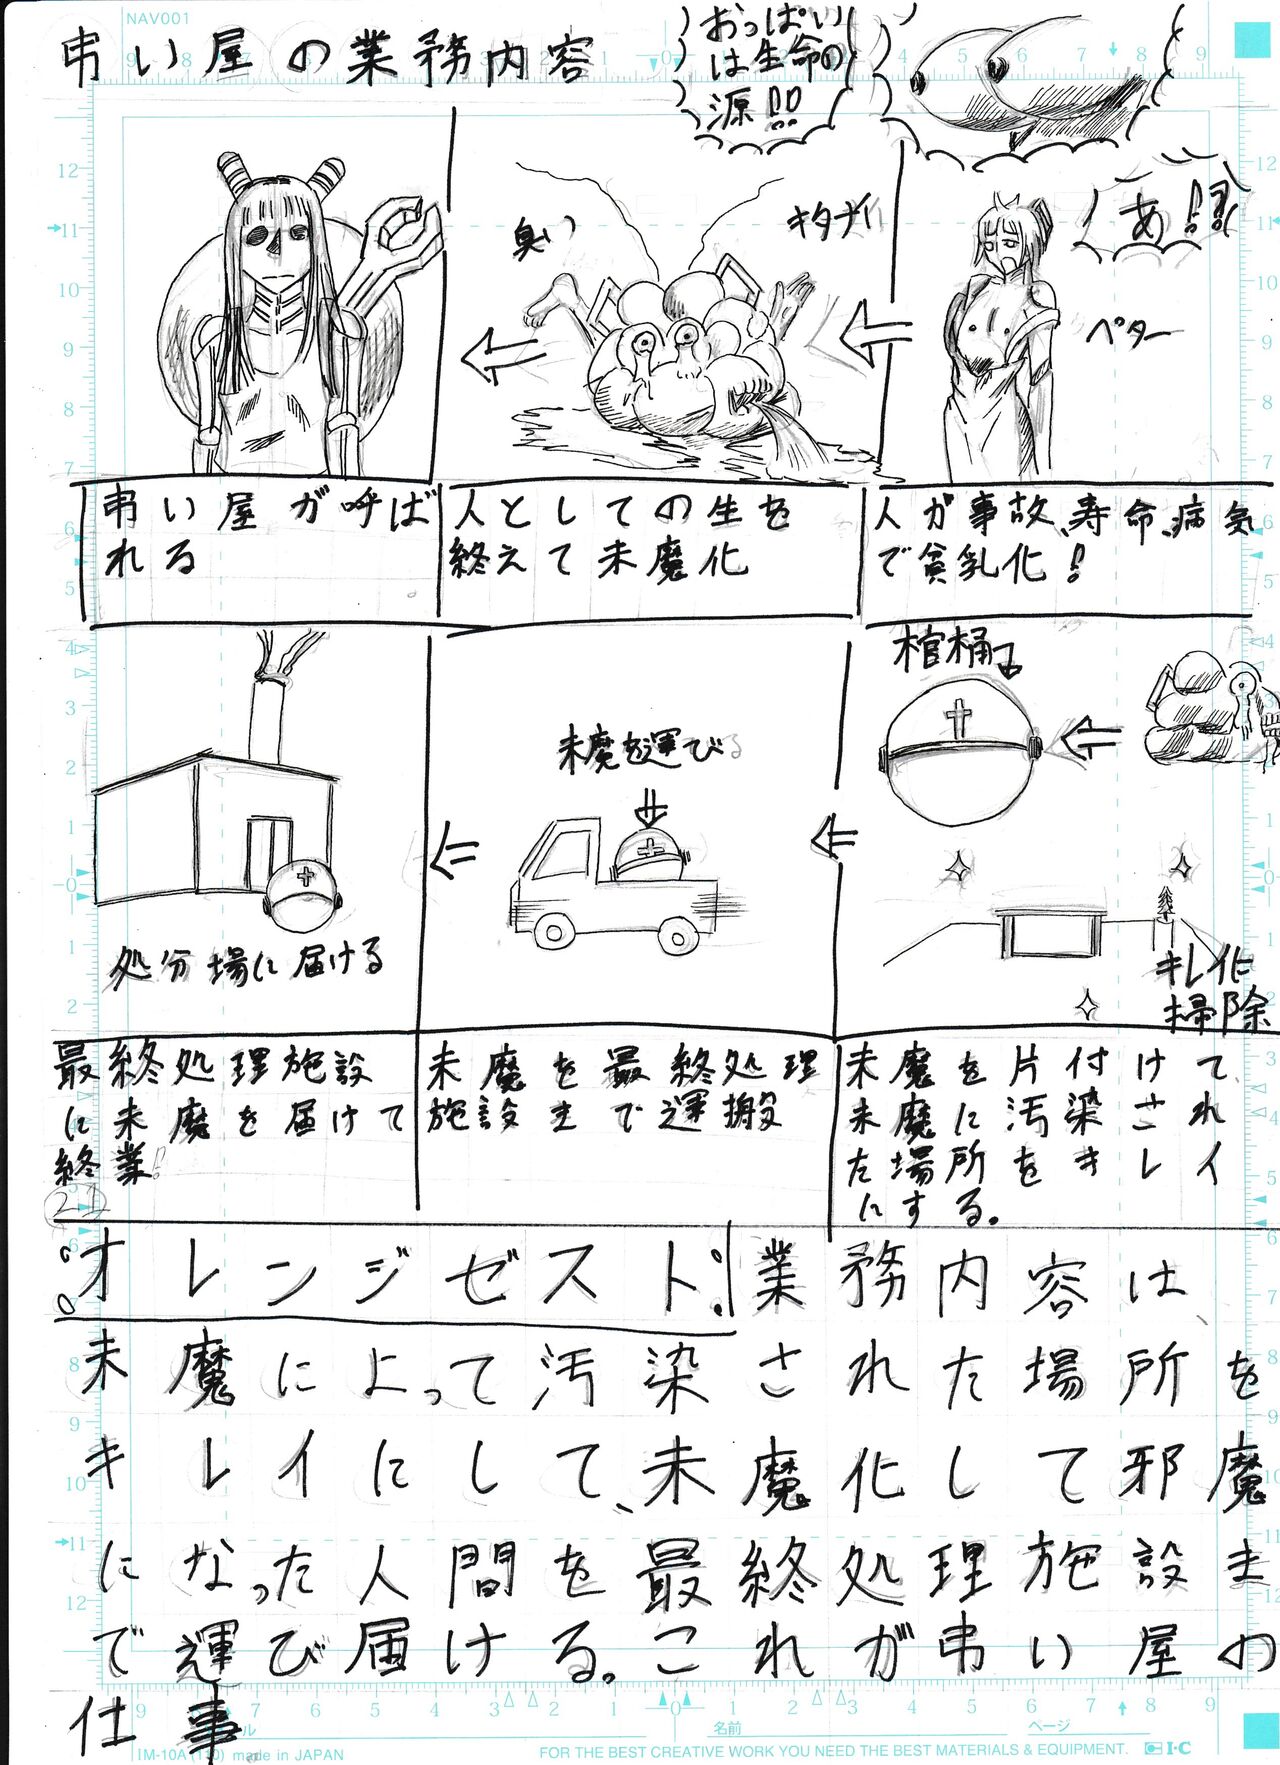 NAV001
弔い屋の業務内容
おっぱい
は生命の
源!!
あ!!
ペター
キタナイ
臭い
人が事故、寿命、病気
で貧乳化!
人としての生を
終えて未魔化
弔い屋が呼ば
れる
棺桶
キレイに
掃除
未魔を運びる
処分場に届ける
未魔を片付けて
未魔に汚染され
た場所をキレイ
にする。
未魔を最終処理
施設まで運搬
最終処理施設
に未魔を届けて
終業!
21
オレンジゼスト!業務内容は
未魔によって汚染された場所を
キレイにして、未魔化して邪魔
になった人間を最終処理施設ま
で運び届ける。これが弔い屋の
仕事
名前
ページ
IM-10A(110) made in JAPAN
FOR THE BEST CREATIVE WORK YOU NEED THE BEST MATERIALS & EQUIPMENT.
I·C